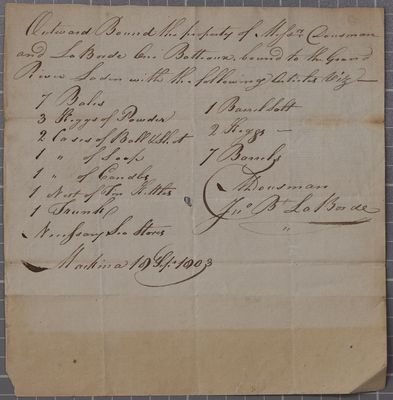 Outward Bound the property of Messrs Dousman
and LaBorde One Batteaux, bound to the Grand
River Laden with the following Articles Viz
7 Bales
3 Keggs of Powder
2 Cases of Ball & Shot
1 " of Soap
1 " of Candles
1 Nest of Tin Kettles
1 Trunk
Necessary Sea Stores
1 Barrel Salt
2 Keggs —
7 Barrels
MDousman
Jno Bt LaBorde
"
Mackina 18 Sept 1803